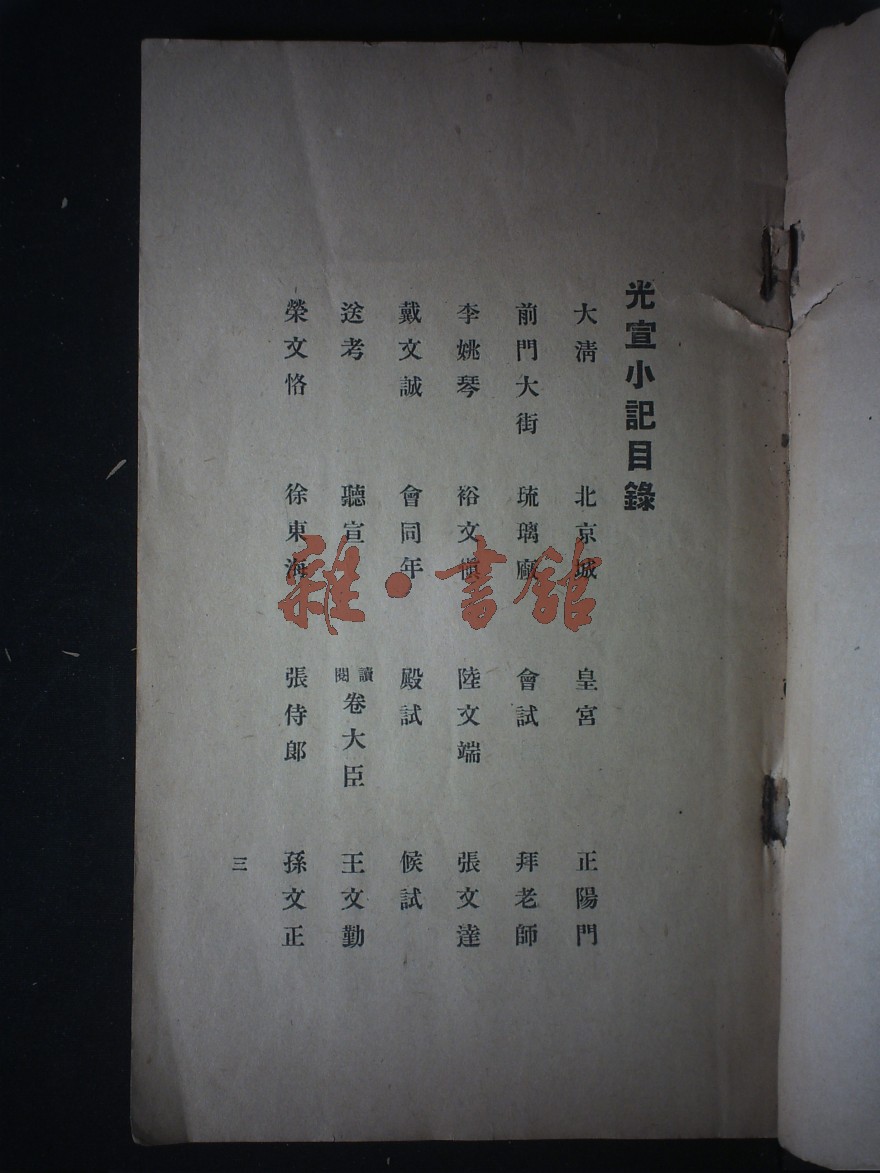 光宣小記目錄
大清 北京城 皇宮 正陽門
前門大街 琉璃廠 會試 拜老師
李姚琴 裕文慎 陸文端 張文達
戴文誠 會同年 殿試 候試
送考 聽宣 讀閱卷大臣 王文勤
榮文恪 徐東海 張侍郎 孫文正
三
雜·書館